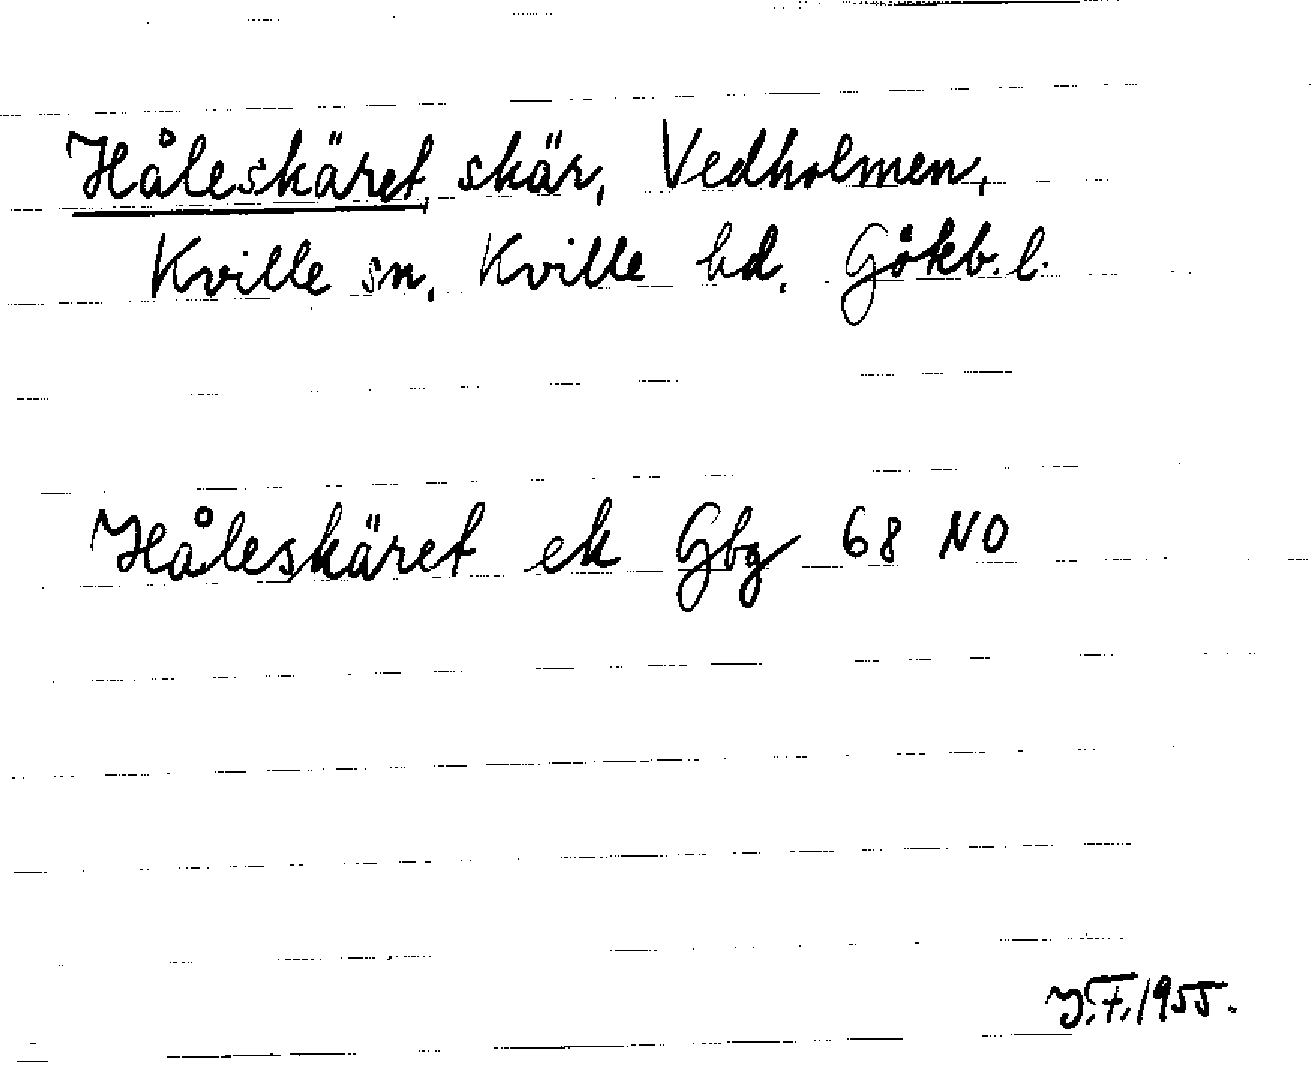 Håleskäret, skär, Vedholmen,
Kville sn, Kville hd, Gökb. l.
Håleskäret ek Gbg 68 NO
J.F. 1955.